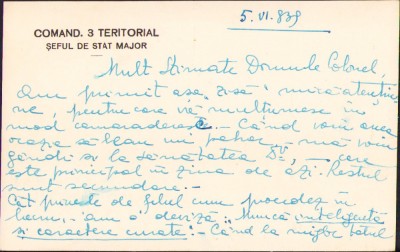 5.VI.939
COMAND. 3 TERITORIAL
ȘEFUL DE STAT MAJOR
Mult Stimate Domnule Colonel,
Am primit așa zisă mica atențiune
ne, pentru care vă mulțumesc în
mod camaraderesc. - Când voiu avea
ocazia să beau un pahar mă voiu
gândi și la sănătatea Dv, - care
este principal în ziua de azi. Restul
sunt secundare. -
Cât privește de felul cum procedez în
lume, am o deviză: "Munca inteligentă
și caractere curate". - Când la mijloc